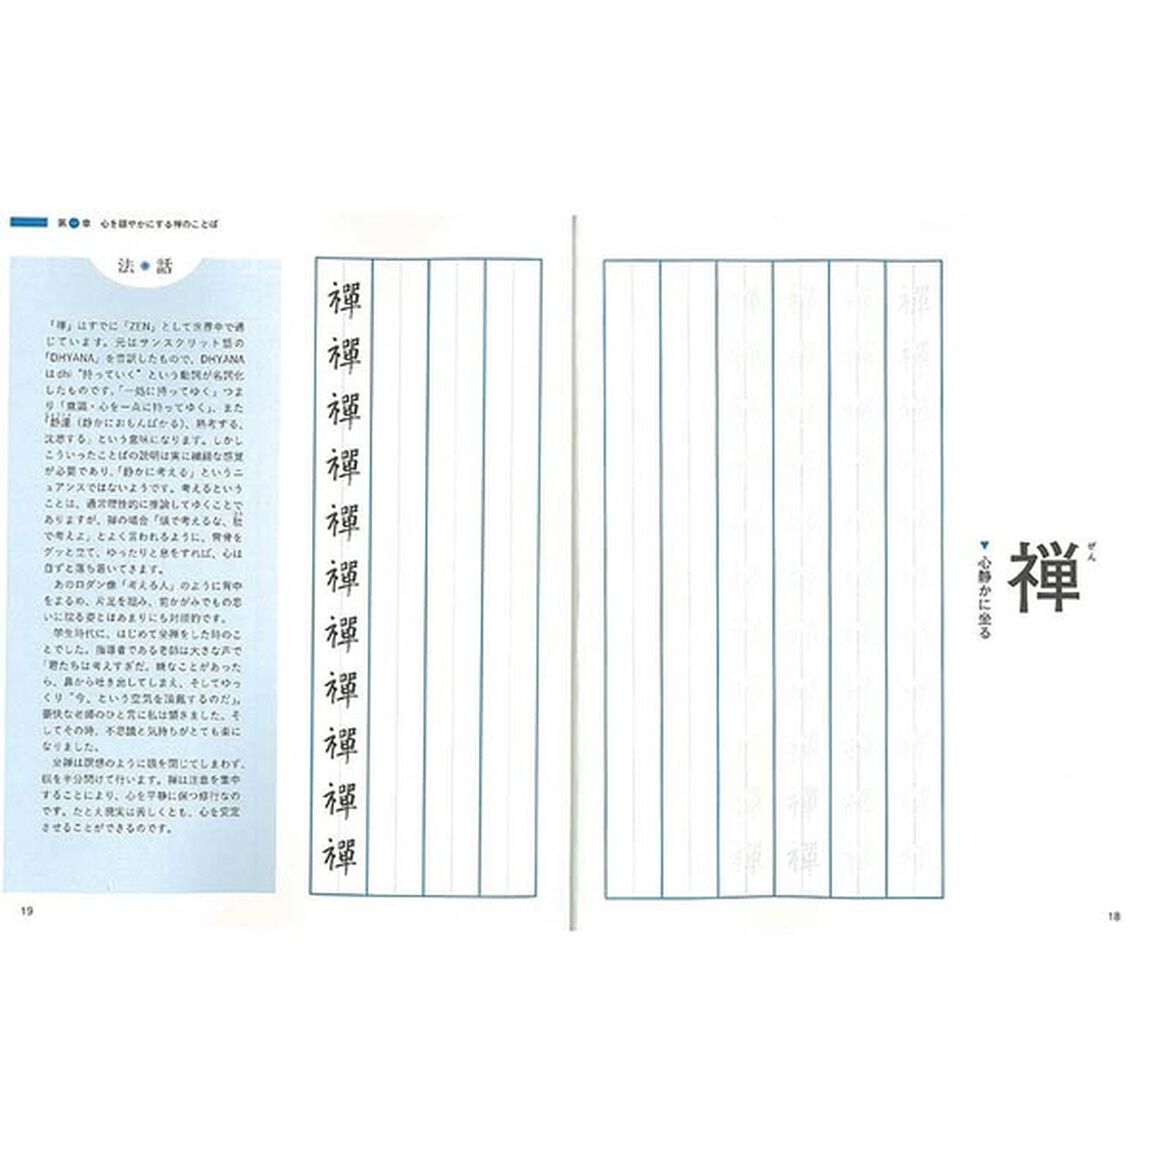 禅
ぜん
心静かに坐る
18
第一章 心を穏やかにする禅のことば
禪
禪
禪
禪
禪
禪
禪
禪
禪
禪
禪
法・話
「禅」はすでに「ZEN」として世界中で通
じています。元はサンスクリット語の
「DHYANA」を音訳したもので、DHYANA
はdhi“持っていく”という動詞が名詞化
したものです。「一処に持ってゆく」つま
り「意識・心を一点に持ってゆく」、また
「静慮（静かにおもんばかる）、熟考する、
沈思する」という意味になります。しかし
こういったことばの説明は実に繊細な感覚
が必要であり、「静かに考える」というニ
ュアンスではないようです。考えるという
ことは、通常理性的に推論してゆくことで
ありますが、禅の場合「頭で考えるな、肚
で考えよ」とよく言われるように、背骨を
グッと立て、ゆったりと息をすれば、心は
自ずと落ち着いてきます。
あのロダン像「考える人」のように背中
をまるめ、片足を組み、前かがみでもの思
いに耽る姿とはあまりにも対照的です。
学生時代に、はじめて坐禅をした時のこ
とでした。指導者である老師は大きな声で
「君たちは考えすぎだ。嫌なことがあった
ら、鼻から吐き出してしまえ、そしてゆっ
くり“今、という空気を頂戴するのだ」。
豪快な老師のひと言に私は頷きました。そ
してその時、不思議と気持ちがとても楽に
なりました。
坐禅は瞑想のように眼を閉じてしまわず、
眼を半分開けて行います。禅は注意を集中
することにより、心を平静に保つ修行なの
です。たとえ現実は苦しくとも、心を安定
させることができるのです。
19